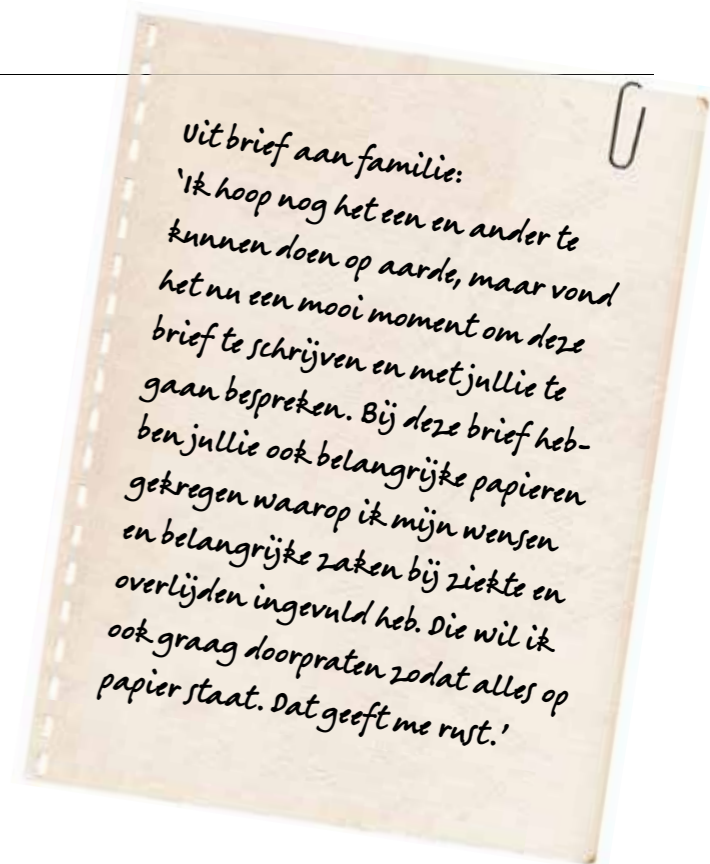 Uit brief aan familie:
‘Ik hoop nog het een en ander te
kunnen doen op aarde, maar vond
het nu een mooi moment om deze
brief te schrijven en met jullie te
gaan bespreken. Bij deze brief heb-
ben jullie ook belangrijke papieren
gekregen waarop ik mijn wensen
en belangrijke zaken bij ziekte en
overlijden ingevuld heb. Die wil ik
ook graag doorpraten zodat alles op
papier staat. Dat geeft me rust.’